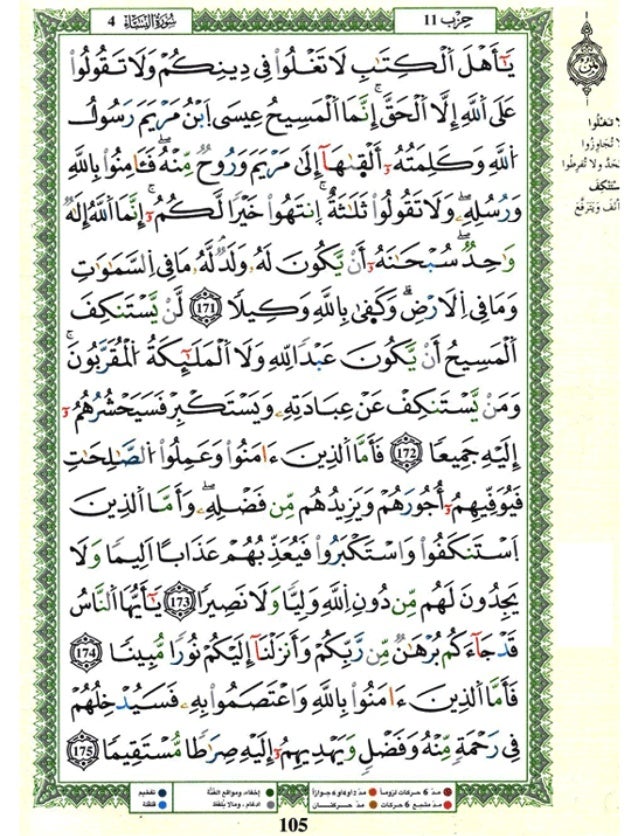 حزب 11
سُورَةُ النِّسَاءِ 4
يَٰٓأَهْلَ اَ۬لْكِتَٰبِ لَا تَغْلُواْ فِے دِينِكُمْ وَلَا تَقُولُواْ
عَلَى اَ۬للَّهِ إِلَّا اَ۬لْحَقَّۖ إِنَّمَا اَ۬لْمَسِيحُ عِيسَى اَ۪بْنُ مَرْيَمَ رَسُولُ
اُ۬للَّهِ وَكَلِمَتُهُۥٓ أَلْقَىٰهَآ إِلَىٰ مَرْيَمَ وَرُوحٞ مِّنْهُۖ فَـَٔامِنُواْ بِاللَّهِ
وَرُسُلِهِۦۖ وَلَا تَقُولُواْ ثَلَٰثَةٌۖ اِ۪نتَهُواْ خَيْراٗ لَّكُمُۥٓۖ إِنَّمَا اَ۬للَّهُ إِلَٰهٞ
وَٰحِدٞۖ سُبْحَٰنَهُۥٓ أَنْ يَّكُونَ لَهُۥ وَلَدٞۖ لَّهُۥ مَا فِے اِ۬لسَّمَٰوَٰتِ
وَمَا فِے اِ۬لَارْضِۖ وَكَفَىٰ بِاللَّهِ وَكِيلاٗ 171 لَّنْ يَّسْتَنكِفَ
اَ۬لْمَسِيحُ أَنْ يَّكُونَ عَبْداٗ لِّلهِ وَلَا اَ۬لْمَلَٰٓئِكَةُ اُ۬لْمُقَرَّبُونَۖ
وَمَنْ يَّسْتَنكِفْ عَنْ عِبَادَتِهِۦ وَيَسْتَكْبِرْ فَسَيَحْشُرُهُمُۥٓ
إِلَيْهِ جَمِيعاٗ 172 فَأَمَّا اَ۬لذِينَ ءَامَنُواْ وَعَمِلُواْ اُ۬لصَّٰلِحَٰتِ
فَيُوَفِّيهِمُۥٓ أُجُورَهُمْ وَيَزِيدُهُم مِّن فَضْلِهِۦۖ وَأَمَّا اَ۬لذِينَ
اَ۪سْتَنكَفُواْ وَاسْتَكْبَرُواْ فَيُعَذِّبُهُمْ عَذَاباً اَلِيماٗ وَلَا
يَجِدُونَ لَهُم مِّن دُونِ اِ۬للَّهِ وَلِيّاٗ وَلَا نَصِيراٗ 173 يَٰٓأَيُّهَا اَ۬لنَّاسُ
قَدْ جَآءَكُم بُرْهَٰنٞ مِّن رَّبِّكُمْ وَأَنزَلْنَآ إِلَيْكُمْ نُوراٗ مُّبِيناٗ 174
فَأَمَّا اَ۬لذِينَ ءَامَنُواْ بِاللَّهِ وَاعْتَصَمُواْ بِهِۦ فَسَيُدْخِلُهُمْ
فِے رَحْمَةٖ مِّنْهُ وَفَضْلٖ وَيَهْدِيهِمُۥٓ إِلَيْهِ صِرَٰطاٗ مُّسْتَقِيماٗ 175
لا تغلوا
لا تجاوزوا
الحد ولا تفرطوا
يستنكف
يأنف ويترفع
مد 6 حركات لزوماً مد 2 أو 4 أو 6 جوازاً إخفاء، ومواقع الغنة تفخيم
مد مشبع 6 حركات مد حركتان إدغام، وما لا يلفظ قلقلة
105